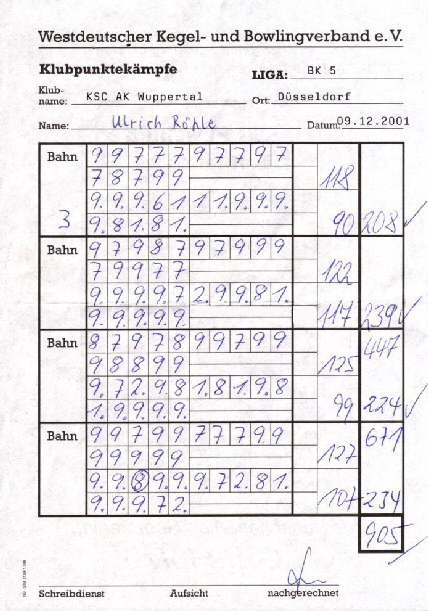 Westdeutscher Kegel- und Bowlingverband e. V.
Klubpunktekämpfe LIGA: BK 5
Klub-
name: KSC AK Wuppertal Ort: Düsseldorf
Name: Ulrich Röhle Datum: 09.12.2001
Bahn 9 9 7 7 7 9 7 7 9 7
7 8 7 9 9 118
9. 9. 9. 6 1 1 1. 9. 9. 9.
3 9. 8 1. 8 1. 90 208 ✓
Bahn 9 7 9 8 7 9 7 9 9 9
7 9 9 7 7 122
9. 9. 9. 9. 7 2. 9. 9. 8 1.
9. 9. 9. 9. 9. 117 239 ✓
Bahn 8 7 9 7 8 9 9 7 9 9 447
9 8 8 9 9 125
9. 7 2. 9. 8 1. 8 1. 9. 8
1. 9. 9. 9. 9. 99 224 ✓
Bahn 9 9 7 9 9 7 7 7 9 9 671
9 9 9 9 9 127
9. 9. 8 9. 9. 9. 7 2. 8 1.
9. 9. 9. 7 2. 107 234
905 ✓
Schreibdienst Aufsicht nachgerechnet